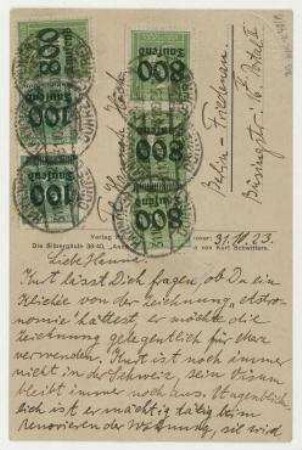 800
Tausend
100
Tausend
100
Tausend
800
Tausend
800
Tausend
800
Tausend
Hannah Höch
Berlin-Friedenau.
Büsingstr. 16. Portal II
Verlag
Die Silbergäule 39-40,
von Kurt Schwitters.
31.10.23.
Liebe Hanna!
Kurt lässt Dich fragen, ob Du ein
Klischee von der Zeichnung „Astro-
nomie“ hättest, er möchte die
Zeichnung gelegentlich für Merz
verwenden. Kurt ist noch immer
nicht in der Schweiz, sein Visum
bleibt immer noch aus. Augenblick-
lich ist er mächtig tätig beim
Renovieren der Wohnung, sie wird